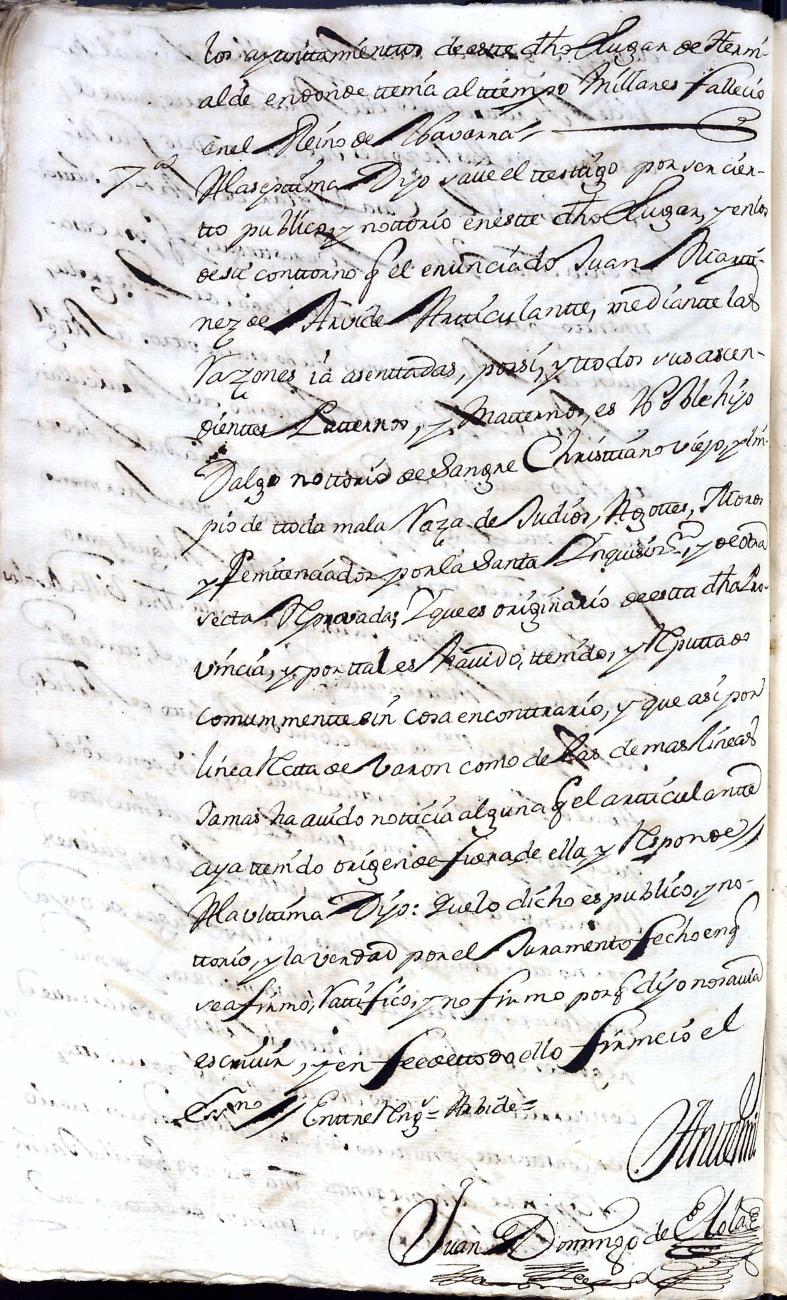 los ayuntamientos de este dho Lugar de Hermi-
alde en donde ttenia al ttiempo Millares fallecio
en el Reino de Navarra
7ª A la septtima Dijo save el ttesttigo por ser cier-
tto publico, y nottorio en este dho Lugar, y en los
de su conttorno q el enunciado Juan Martti-
nez de Arvide Artticulantte, mediantte las
Razones ia asenttadas, por si, y ttodos sus ascen-
dienttes Patternos, y Matternos, es Noble hijo
Dalgo nottorio de Sangre Christtiano viejo, y lim-
pio de ttoda mala Raza de Judios, Agottes, Moros
y Penitenciados por la Santa Inquisizon, y de otra
secta Reprovada; Y que es originario de estta dha Pro-
vincia, y por ttal es Havido, ttenido, y Reputtado
comunmentte sin cosa en conttrario, y que asi por
linea Rectta de Varon como de las demas lineas
Jamas ha auido notticia alguna q el artticulantte
aya ttenido origen de fuera de ella y Responde //
A la ulttima Dijo: Que lo dicho es publico, y no-
ttorio, y la verdad por el Juramento fecho en q
se afirmo, Rattifico, y no firmo porq dijo no savia
escrivir, y en fee de ttodo ello firme io el
Essno // Enttre Rengs = Arbide =
Juan Domingo de Elola